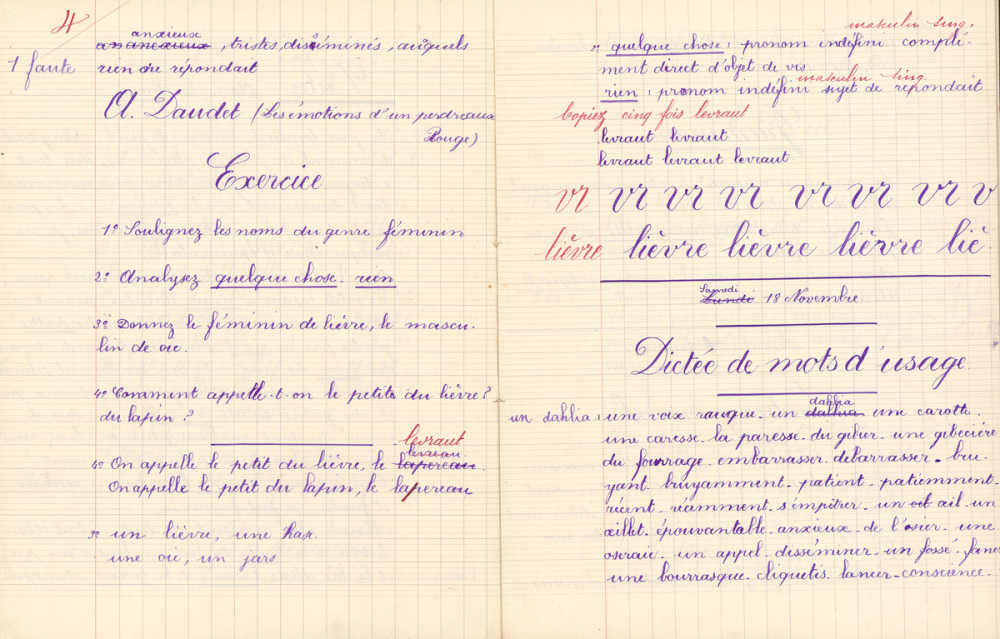 4
anxieux
an anexieux, tristes, disséminés, auxquels
1 faute
rien ne répondait
A. Daudet (Les émotions d'un perdreau
Rouge)
Exercice
1º Soulignez les noms du genre féminin
2º Analysez quelque chose. rien
3º Donnez le féminin de lièvre, le mascu-
lin de oie.
4º Comment appelle-t-on le petits du lièvre?
du lapin?
levraut
levreau
4º On appelle le petit du lièvre, le lapereau.
On appelle le petit du lapin, le lapereau
3º un lièvre, une hase
une oie, un jars
masculin sing.
2º quelque chose: pronom indéfini complé-
ment direct d'objet de vis
masculin sing.
rien: pronom indéfini sujet de répondait
Copiez cinq fois levraut
levraut levraut
levraut levraut levraut
vr vr vr vr vr vr vr v
lièvre lièvre lièvre lièvre liè
Samedi
Lundi 18 Novembre
Dictée de mots d'usage
dahlia
un dahlia: une voix rauque. un dallia une carotte.
une caresse. la paresse. du gibier. une gibecière
du fourrage. embarrasser. débarrasser. bru-
yant. bruyamment. patient. patiemment.
récent. récemment. s'empêtrer. un oil œil. un
œillet. épouvantable. anxieux. de l'osier. une
oseraie. un appel. disséminer. un fossé. fane
une bourrasque. cliquetis. lancer. conscience.